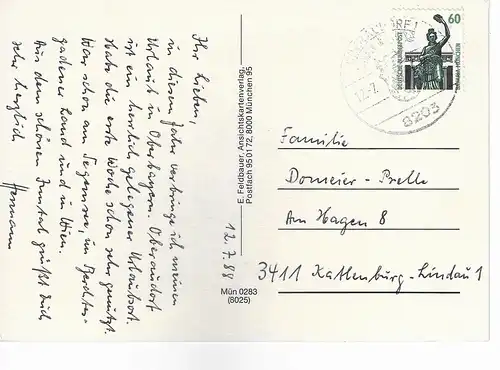 Ihr Lieben,
in diesem Jahr verbringe ich meinen
Urlaub in Oberbayern. Oberaudorf
ist ein herrlich gelegener Urlaubsort.
Habe die erste Woche schon sehr genutzt.
War schon am Tegernsee, im Berchtes-
gadener Land und in Wien.
Aus dem schönen Inntal grüßt Dich
sehr herzlich
Hermann
12.7.88
E. Feldbauer, Ansichtskartenverlag,
Postfach 95 01 72, 8000 München 95
Mün 0283
(8025)
60
DEUTSCHE BUNDESPOST
8203
Familie
Domeier-Prelle
Am Hagen 8
3411 Katlenburg-Lindau 1